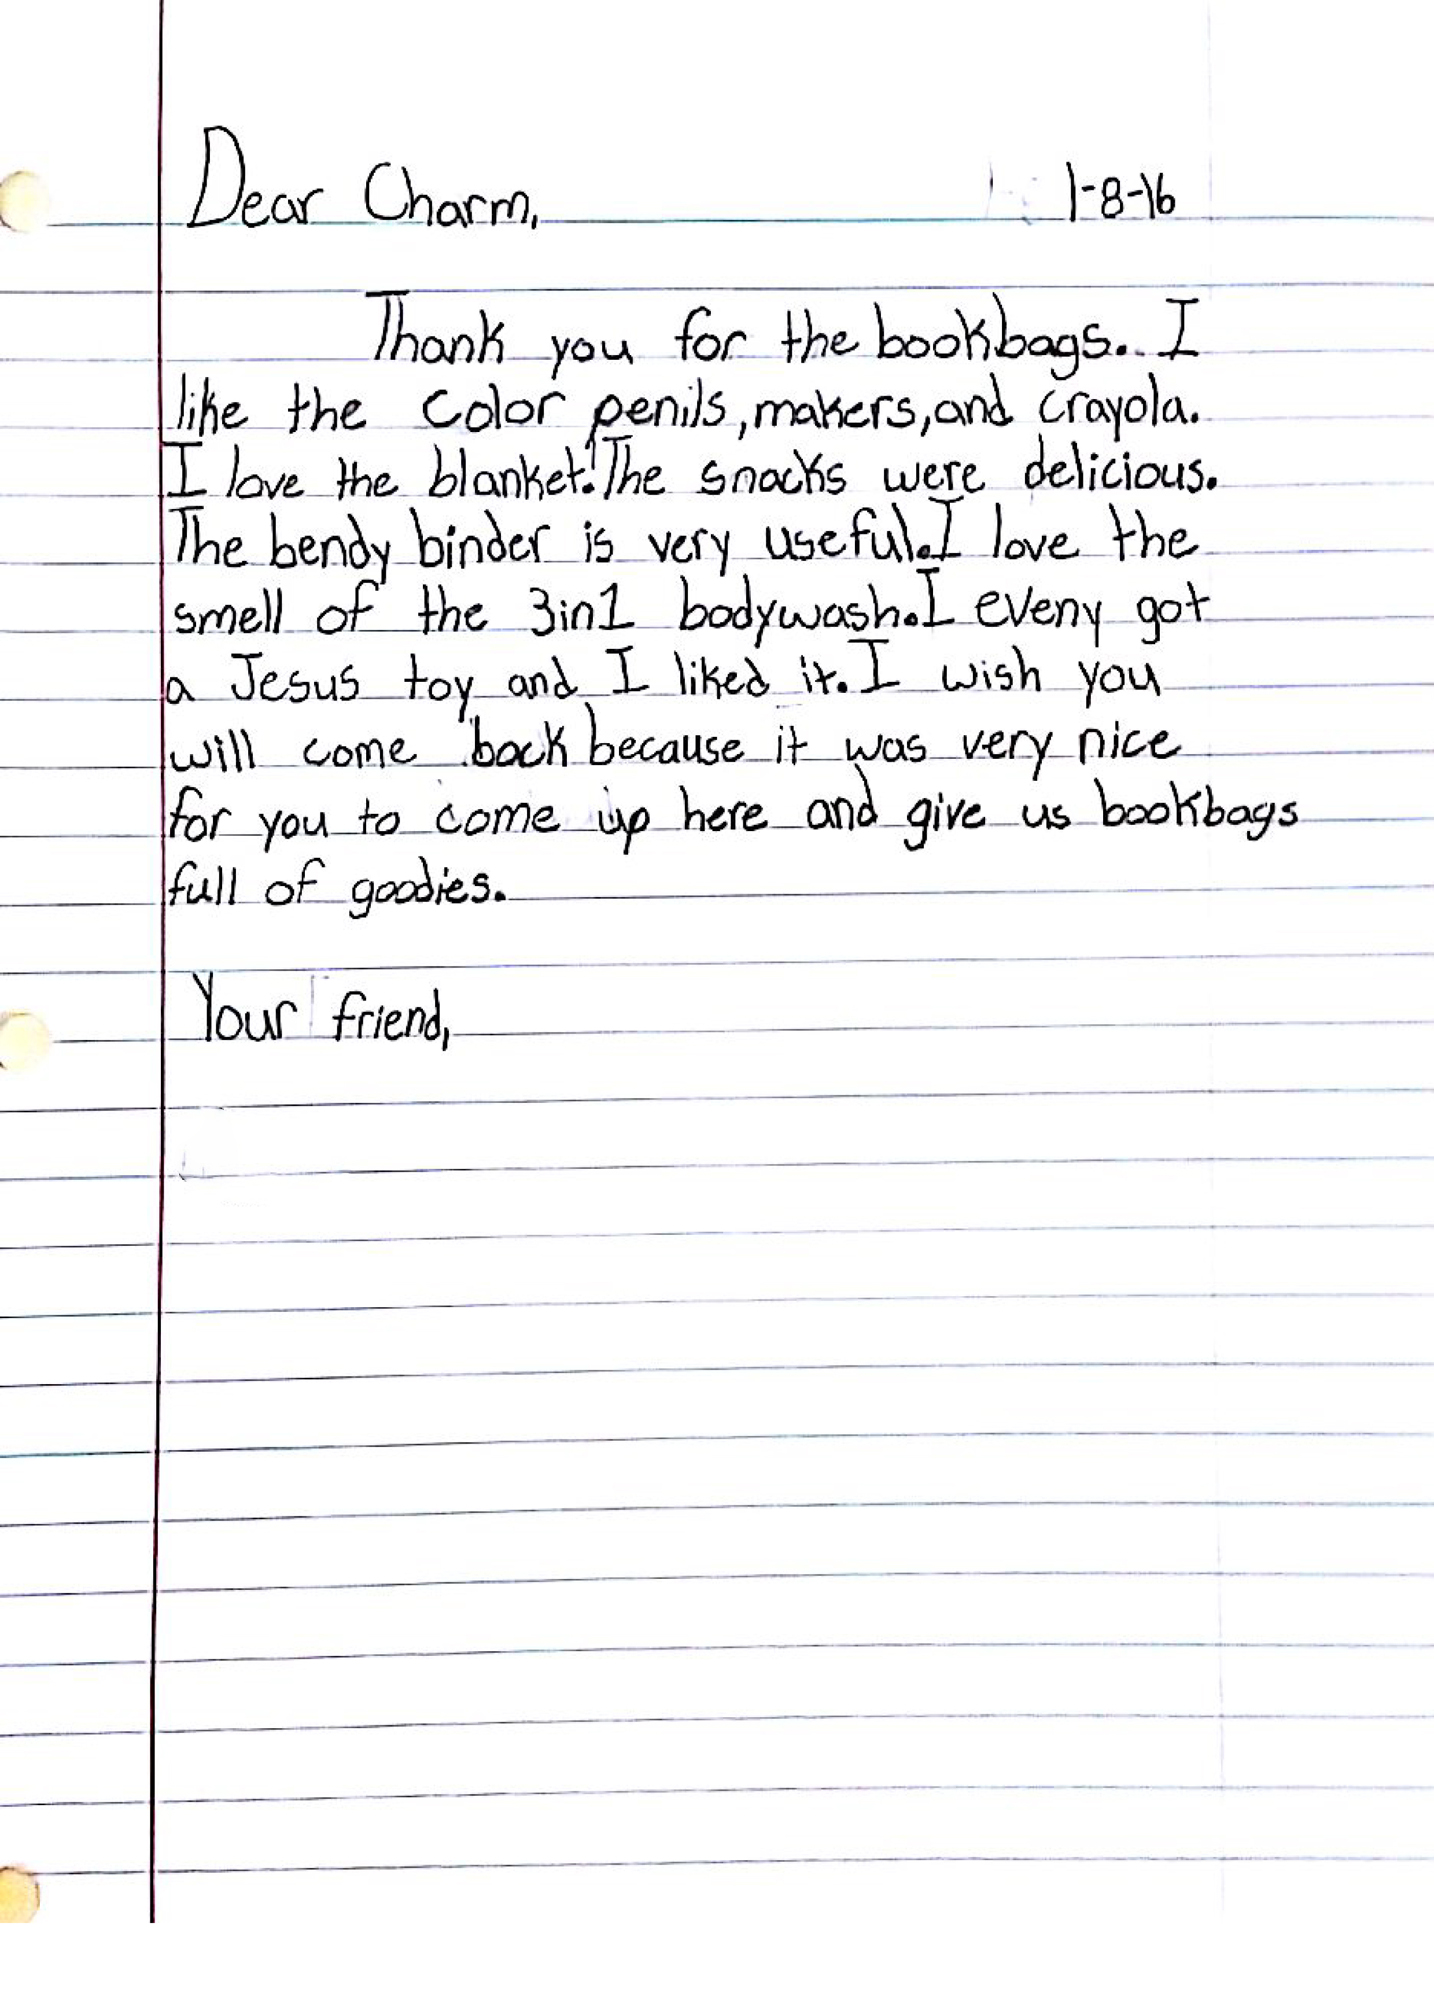 Dear Charm, 1-8-16
Thank you for the bookbags. I
like the color penils, makers, and crayola.
I love the blanket! The snacks were delicious.
The bendy binder is very useful. I love the
smell of the 3in1 bodywash. I eveny got
a Jesus toy and I liked it. I wish you
will come back because it was very nice
for you to come up here and give us bookbags
full of goodies.
Your friend,